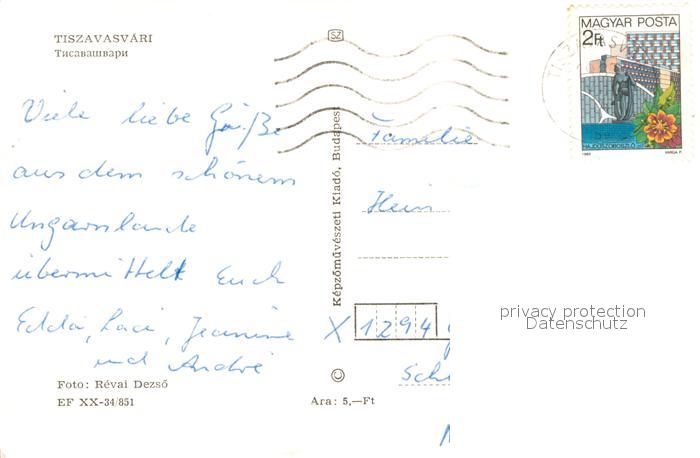 TISZAVASVÁRI
Тисавашвари
Viele liebe Grüße
aus dem schönem
Ungarnlande
übermittelt Euch
Edda, Laci, Jeanine
und André
Foto: Révai Dezső
EF XX-34/851
SZ
Képzőművészeti Kiadó, Budapest
Ara: 5,—Ft
MAGYAR POSTA
2Ft
HAJDÚSZOBOSZLÓ
VARGA P.
Familie
Hein
X 1294
Sch
privacy protection
Datenschutz